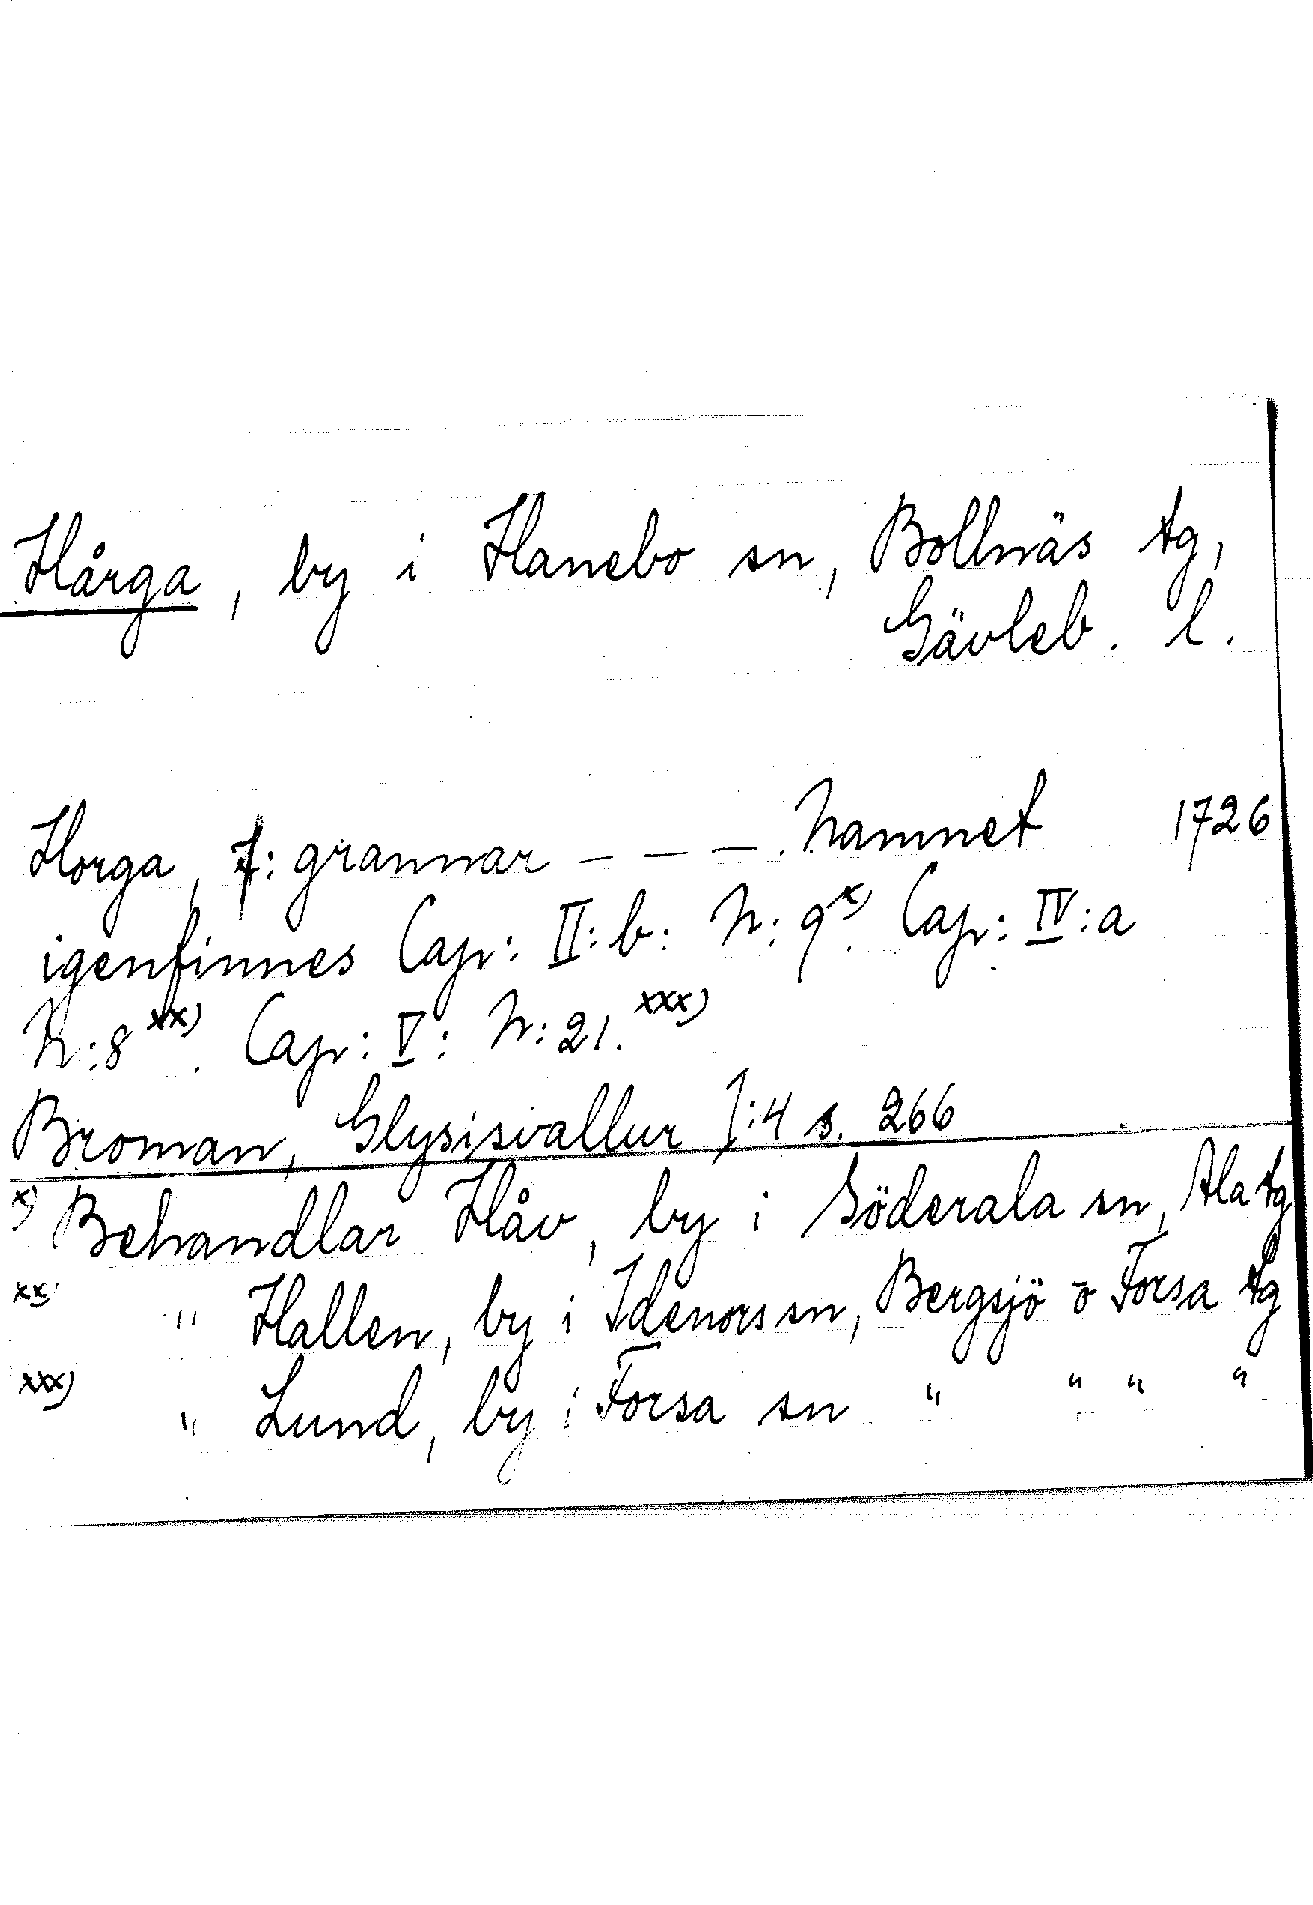 Hårga, by i Hanebo sn, Bollnäs tg,
Gävleb. l.
Horga, 7: grannar – – – . Namnet 1726
igenfinnes Cap: II:b: N:9 x). Cap: IV:a
N:8 xx). Cap: V: N:21. xxx)
Broman, Glysisvallur I:4 s. 266
x) Behandlar Håv, by i Söderala sn, Ala tg
xx) " Hallen, by i Idenors sn, Bergsjö o Forsa tg
xxx) " Lund, by i Forsa sn " " " "